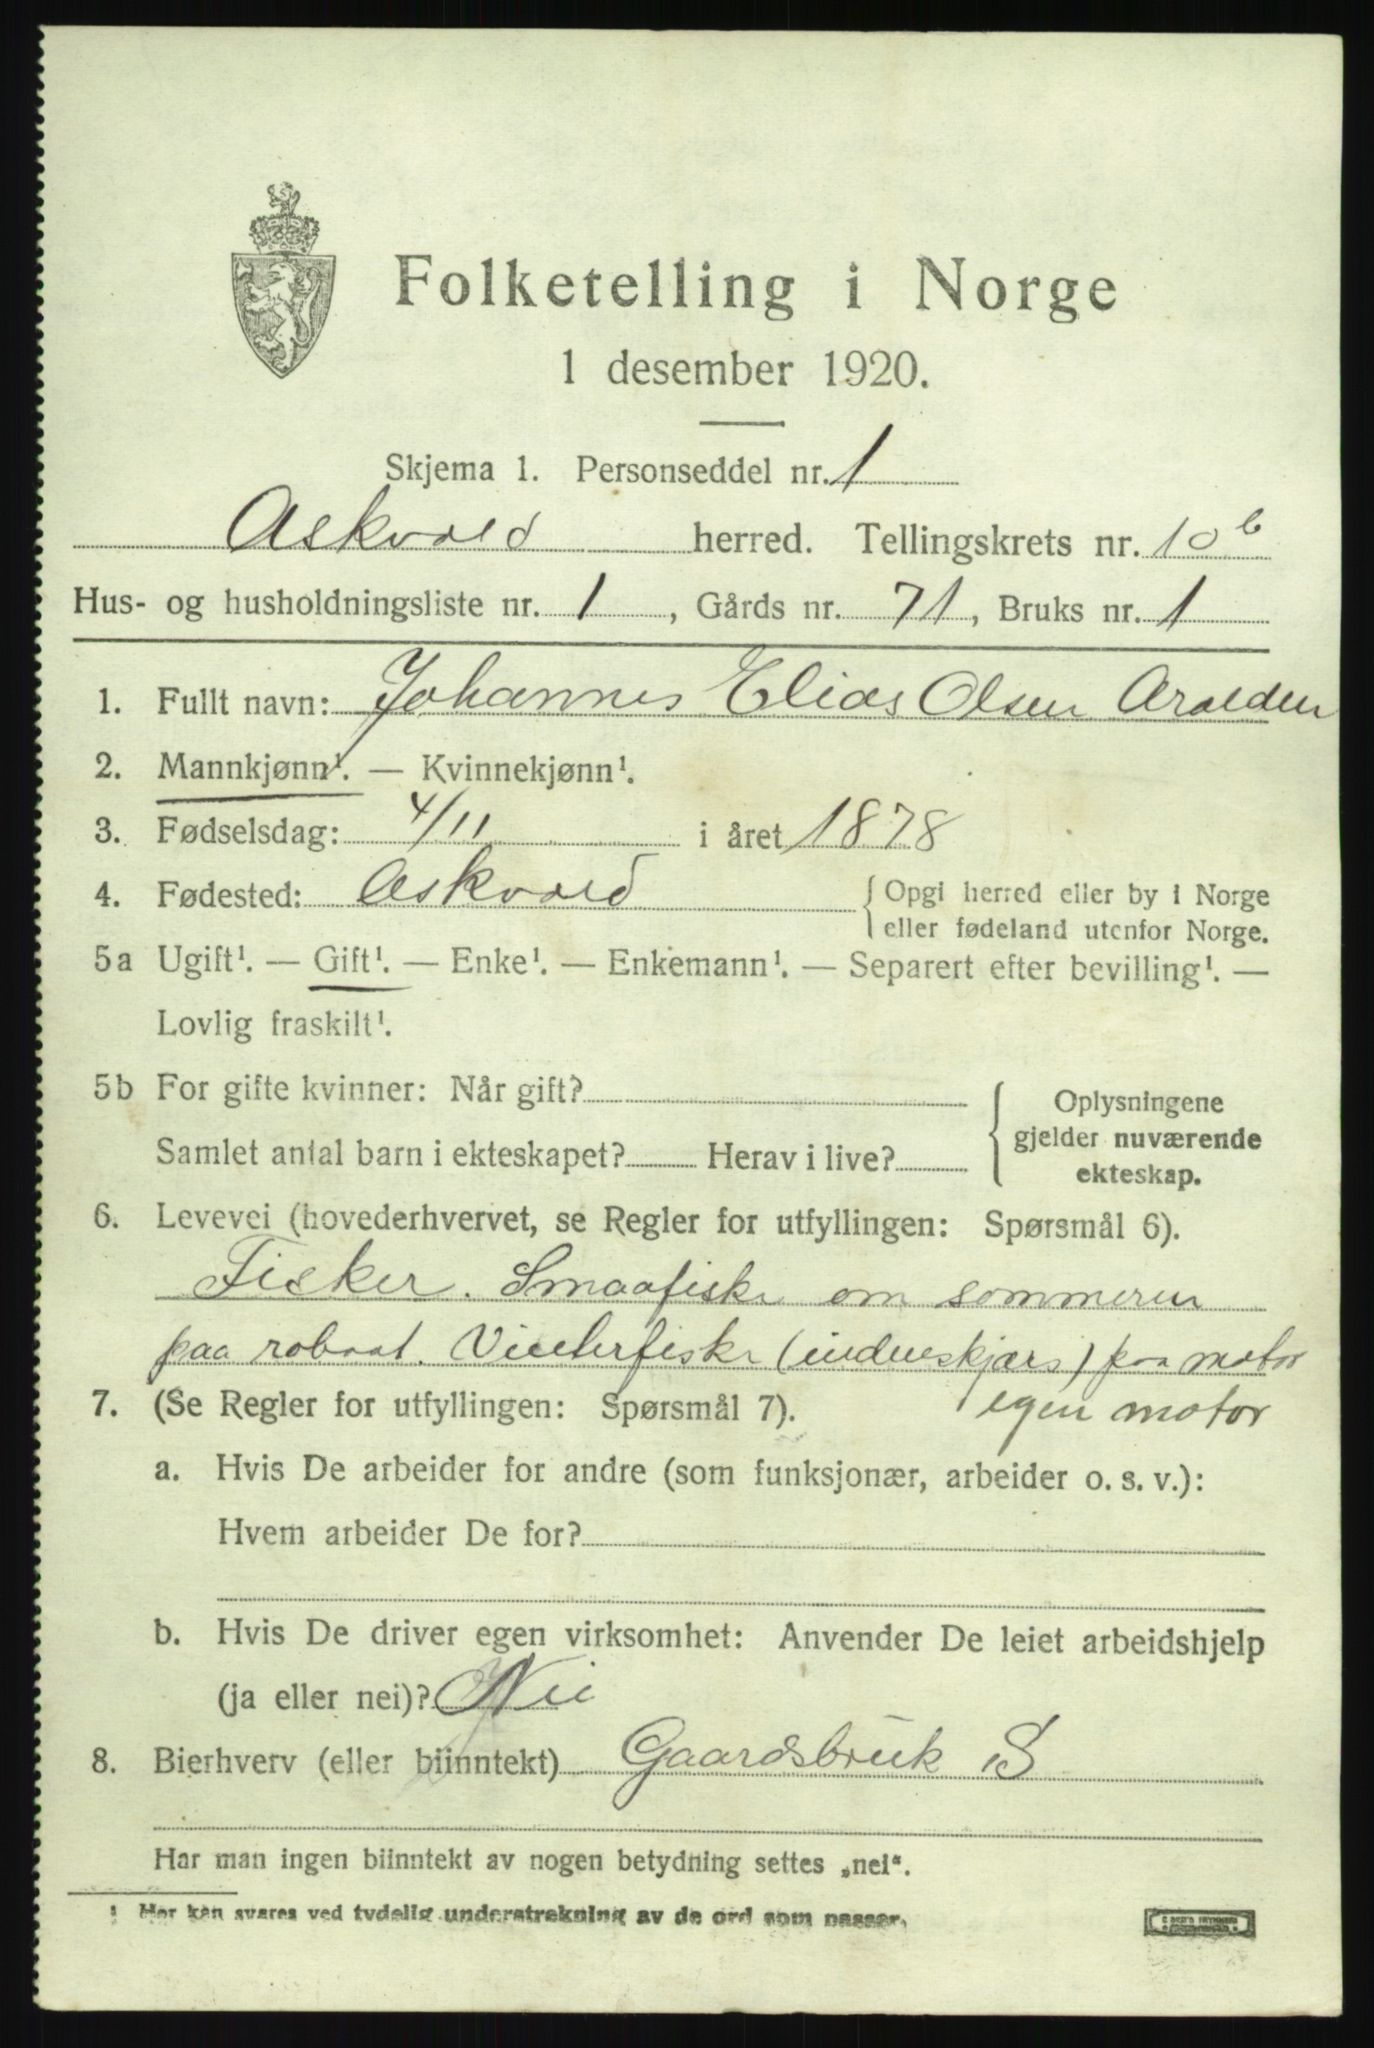 Folketelling i Norge
1 desember 1920.
Skjema 1. Personseddel nr. 1
Askvold herred. Tellingskrets nr. 10b
Hus- og husholdningsliste nr. 1, Gårds nr. 71, Bruks nr. 1
1. Fullt navn: Johannes Elias Olsen Aralden
2. Mannkjønn¹. — Kvinnekjønn¹.
3. Fødselsdag: 4/11 i året 1878
4. Fødested: Askvold { Opgi herred eller by i Norge
eller fødeland utenfor Norge.
5a Ugift¹. — Gift¹. — Enke¹. — Enkemann¹. — Separert efter bevilling¹. —
Lovlig fraskilt¹.
5b For gifte kvinner: Når gift?
Samlet antal barn i ekteskapet? Herav i live?
{ Oplysningene
gjelder nuværende
ekteskap.
6. Levevei (hovederhvervet, se Regler for utfyllingen: Spørsmål 6).
Fisker. Smaafiske om sommeren
paa robaat. Vinterfiske (indenskjærs) paa motor
egen motor
7. (Se Regler for utfyllingen: Spørsmål 7).
a. Hvis De arbeider for andre (som funksjonær, arbeider o. s. v.):
Hvem arbeider De for?
b. Hvis De driver egen virksomhet: Anvender De leiet arbeidshjelp
(ja eller nei)? Nei
8. Bierhverv (eller biinntekt) Gaardsbruk S
Har man ingen biinntekt av nogen betydning settes „nei“.
¹ Her kan svares ved tydelig understrekning av de ord som passer.